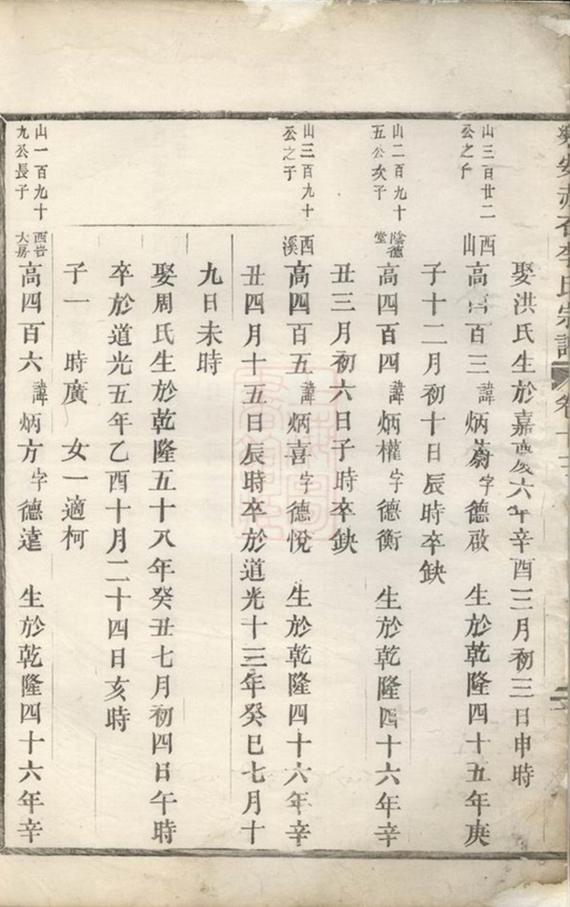 安赤石李氏宗譜
卷十
娶洪氏生於嘉慶六年辛酉三月初三日申時
山三百廿二公之子
西山
高四百三諱炳蔚字德啟 生於乾隆四十五年庚
子十二月初十日辰時卒缺
山二百九十五公次子
陰德堂
高四百四諱炳權字德衡 生於乾隆四十六年辛
丑三月初六日子時卒缺
山三百九十公之子
西溪
高四百五諱炳喜字德悅 生於乾隆四十六年辛
丑四月十五日辰時卒於道光十三年癸巳七月十
九日未時
娶周氏生於乾隆五十八年癸丑七月初四日午時
卒於道光五年乙酉十月二十四日亥時
子一 時廣 女一適柯
山一百九十九公長子
大房
高四百六諱炳方字德達 生於乾隆四十六年辛